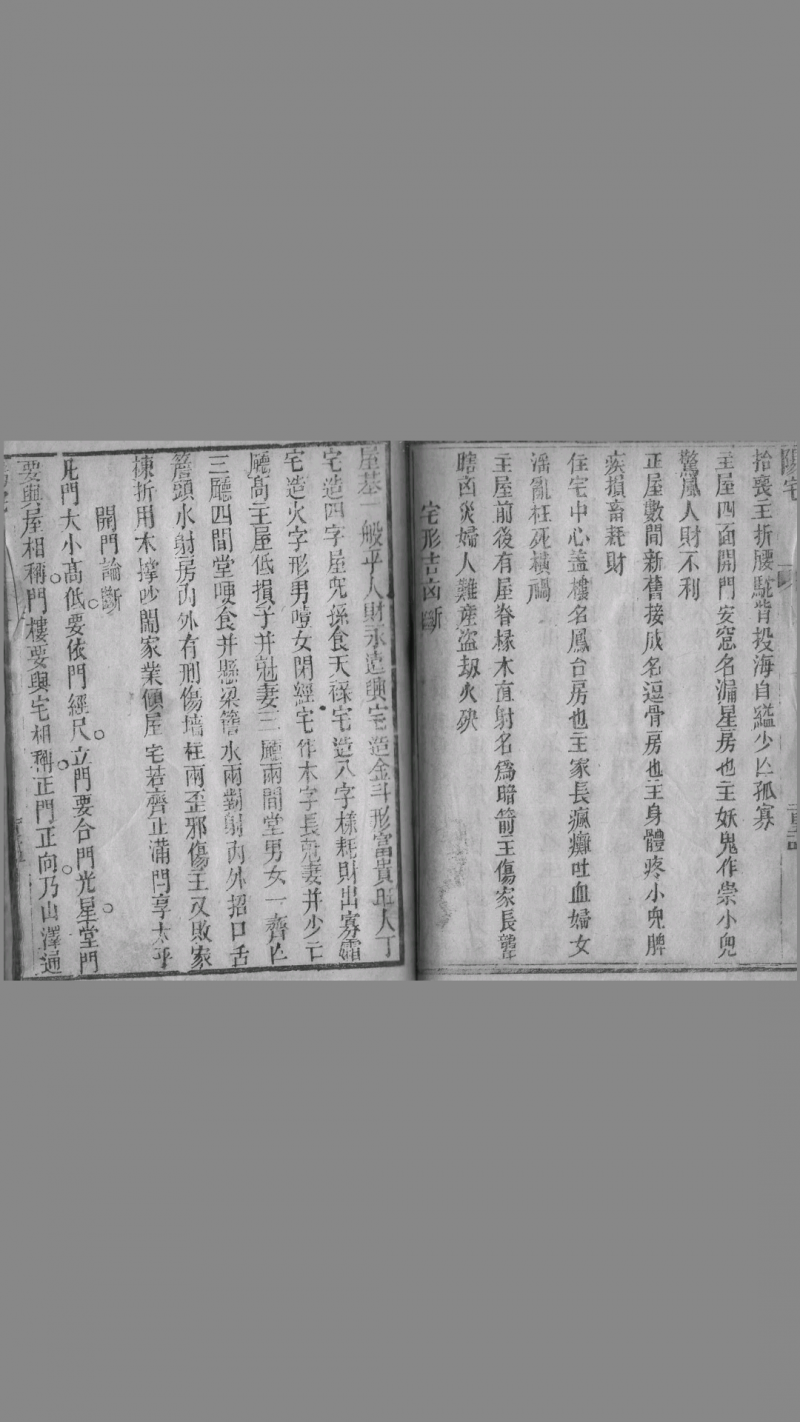 陽宅
拾喪主折腰駝背投海自縊少亾孤寡
主屋四面開門安窓名漏星房也主妖鬼作祟小兒
驚風人財不利
正屋數間新舊接成名逼骨房也主身體疼小兒脾
疾損畜耗財
住宅中心盖樓名鳳台房也主家長瘋癱吐血婦女
滛亂枉死横禍
主屋前後有屋脊椽木直射名爲暗箭主傷家長聾
瞎凶災婦人難産盗刼火殃
宅形吉凶斷
屋基一般平人財永遠興宅造金斗形富貴旺人丁
宅造四字屋兒孫食天祿宅造八字樣耗財出寡孀
宅造火字形男啞女閉經宅作木字長尅妻并少亡
廳高主屋低損子并尅妻三廳兩間堂男女一齊亾
三廳四間堂哽食并懸梁簷水兩對射內外招口舌
簷頭水射房內外有刑傷墻柱兩歪邪傷主又敗家
棟折用木撑吵鬧家業傾屋宅若齊正滿門享太平
開門論斷
凡門大小高低要依門經尺立門要合門光星堂門
要與屋相稱門樓要與宅相稱正門正向乃山澤通